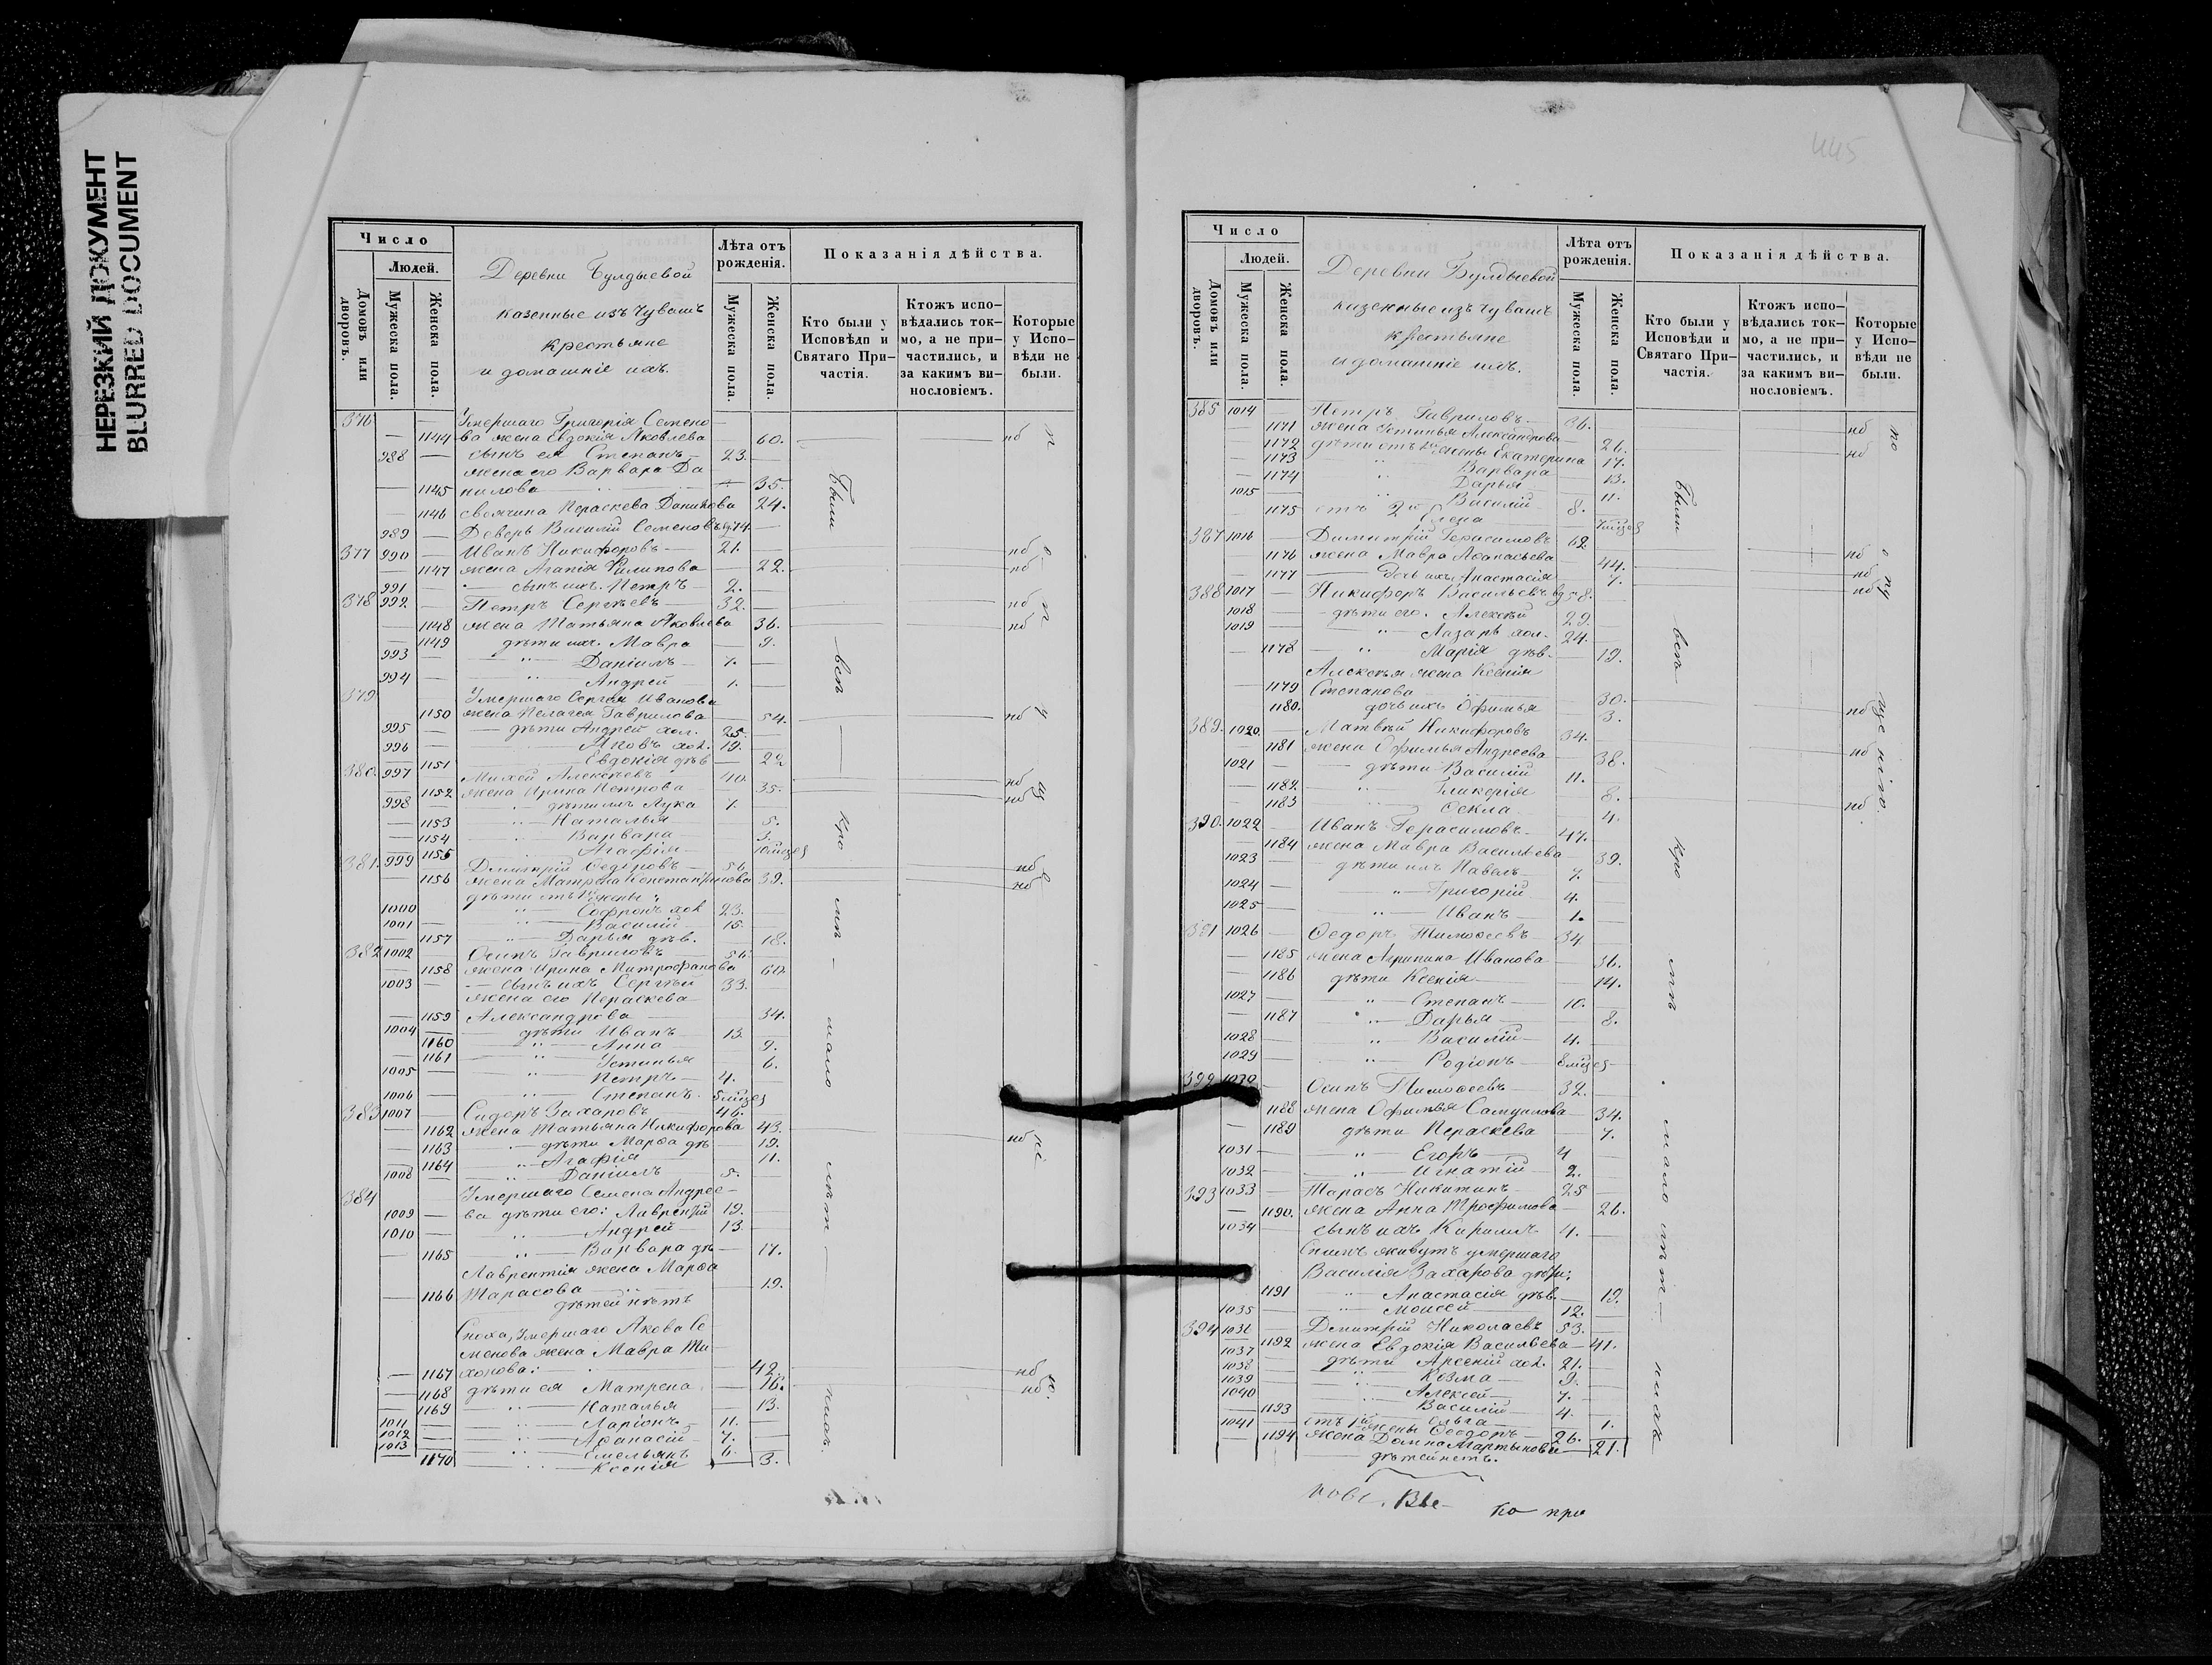 НЕРЕЗКИЙ ДОКУМЕНТ
BLURRED DOCUMENT
Число
Людей.
Домовъ или дворовъ.
Мужеска пола.
Женска пола.
Деревни Булдыевой
казенные изъ Чувашъ
крестьяне
и домашніе ихъ.
Лѣта отъ рожденія.
Мужеска пола.
Женска пола.
Показанія дѣйства.
Кто были у Исповѣди и Святаго Причастія.
Ктожъ исповѣдались токмо, а не причастились, и за какимъ винословіемъ.
Которые у Исповѣди не были.
376 — — Умершаго Григорія Семено
— 1144 ва жена Евдокія Яковлева — 60. нб
988 — сынъ ея Степанъ 23. —
жена его Варвара Да
— 1145 нилова — 35.
— 1146 своячина Пераскева Данилова 24.
989 — Деверь Василій Семеновъ 74. —
377 990 — Иванъ Никифоровъ 21. нб
— 1147 жена Агапія Филипова — 22. нб
991 — сынъ ихъ Петръ 2.
378 992 — Петръ Сергѣевъ 32. — нб
— 1148 жена Татьяна Яковлева 36. нб
— 1149 дѣти ихъ Мавра 9.
993 — " Даніилъ 7. —
994 — " Андрей 1.
379 Умершаго Сергѣя Иванова
1150 жена Пелагея Гаврилова — 54. нб
995 — дѣти Андрей хол. 25. —
996 — Яковъ хол. 19. —
— 1151 Евдокія дѣв — 22
380. 997 Михей Алексѣевъ 40. нб
— 1152 жена Ирина Петрова — 35. нб
998 — " дѣти ихъ Лука 7.
— 1153 " Наталья 5.
— 1154 " Варвара 3.
— 1155 " Агафія 10 мцез
381. 999 — Дмитрій Федоровъ 56. нб
— 1156 жена Матрена Константинова 39. нб
дѣти отъ 1й жены:
1000 " Софронъ хол 23. —
1001 — " Василій 15. —
— 1157 " Дарья дѣв. 18.
382 1002 — Осипъ Гавриловъ 56
— 1158 жена Ирина Митрофанова 60.
1003 — сынъ ихъ Сергѣй 33.
жена его Пераскева
— 1159 Александрова 34.
1004 — дѣти Иванъ 13
— 1160 " Анна 9.
— 1161 " Устинья 6.
1005 — " Петръ 4.
1006 — " Степанъ 5 мцез
383 1007 — Сидоръ Захаровъ 46. —
— 1162 жена Татьяна Никифорова 43. нб
— 1163 дѣти Марѳа дѣ 19.
— 1164 " Агафія 11.
1008 — " Даніилъ 5. —
384 Умершаго Семена Андрее
1009 — ва дѣти его: Лаврентій 19.
1010 — " Андрей 13
— 1165 " Варвара дѣ — 17.
Лаврентія жена Марѳа
— 1166 Тарасова — 19.
дѣтей нѣтъ
Сноха, умершаго Якова Се
менова жена Мавра Ти
— 1167 хонова: 42. нб
— 1168 дѣти ея Матрена — 16. нб
— 1169 " Наталья 13.
1011 " Ларіонъ 11.
1012 " Аѳанасій 7.
1013 " Емельянъ 6.
— 1170 " Ксенія — 3.
Были
всѣ
кро
мѣ
мало
лѣт
ныхъ.
445
Число
Людей.
Домовъ или дворовъ.
Мужеска пола.
Женска пола.
Деревни Булдыевой
казенные изъ Чувашъ
крестьяне
и домашніе ихъ.
Лѣта отъ рожденія.
Мужеска пола.
Женска пола.
Показанія дѣйства.
Кто были у Исповѣди и Святаго Причастія.
Ктожъ исповѣдались токмо, а не причастились, и за какимъ винословіемъ.
Которые у Исповѣди не были.
385 1014 — Петръ Гавриловъ 36. нб
— 1171 жена Устинья Александрова 26. нб
1172 дѣти отъ 1й жены Екатерина 17.
— 1173 " Варвара 13.
— 1174 " Дарья 11.
1015 — " Василій 8.
— 1175 отъ 2й Елена 7 мцез
387 1016 — Димитрій Герасимовъ 62 нб
— 1176 жена Мавра Аѳанасьева 44. нб
— 1177 — дочь ихъ Анастасія 7.
388 1017 — Никифоръ Васильевъ вд 58. нб
1018 — дѣти его. Алексѣй 29.
1019 — " Лазарь хол. 24.
— 1178 " Марія дѣв. 19.
Алексѣя жена Ксенія
— 1179 Степанова 30.
— 1180. дочь ихъ Офимья 3. нб
389. 1020. — Матвѣй Никифоровъ 34.
— 1181 жена Офимья Андреева 38. нб
1021 — дѣти Василій 11.
— 1182 " Гликерія 8.
— 1183 Ѳекла 4. нб
390. 1022 — Иванъ Герасимовъ 47.
— 1184 жена Мавра Васильева 39.
1023 — дѣти ихъ Павелъ 7.
1024 — " Григорій 4.
1025 — " Иванъ 1.
391 1026 — Ѳедоръ Тимоѳеевъ 34
— 1185 жена Агрипина Иванова 36.
— 1186 дѣти Ксенія 14.
1027 — " Степанъ 10.
— 1187 " Дарья 8.
1028 — " Василій 4.
1029 — " Родіонъ 8 мцез
392 1030 — Осипъ Тимоѳеевъ 32.
— 1188 жена Офимья Самуилова 34.
— 1189 дѣти Пераскева 7.
1031 — " Егоръ 4
1032 — " Игнатій 2.
393 1033 — Тарасъ Никитинъ 25
— 1190. жена Анна Трофимова 26.
1034 — сынъ ихъ Кириллъ 4.
Снимъ живутъ умершаго
Василія Захарова дѣти;
1191 " Анастасія дѣв. 19.
1035 — " Моисей 12.
394 1036 — Дмитрій Николаевъ 53.
— 1192 жена Евдокія Васильева 41.
1037 дѣти Арсеній хол. 21.
1038 " Козма 9.
1039 " Алексѣй 7.
1040 " Василій 4.
— 1193 " Ольга 1.
1041 — отъ 1й жены Ѳеодоръ 26.
— 1194 жена Домна Мартынова 21.
дѣтей нетъ.
Были
всѣ
кро
мѣ
мало
лѣт
ныхъ